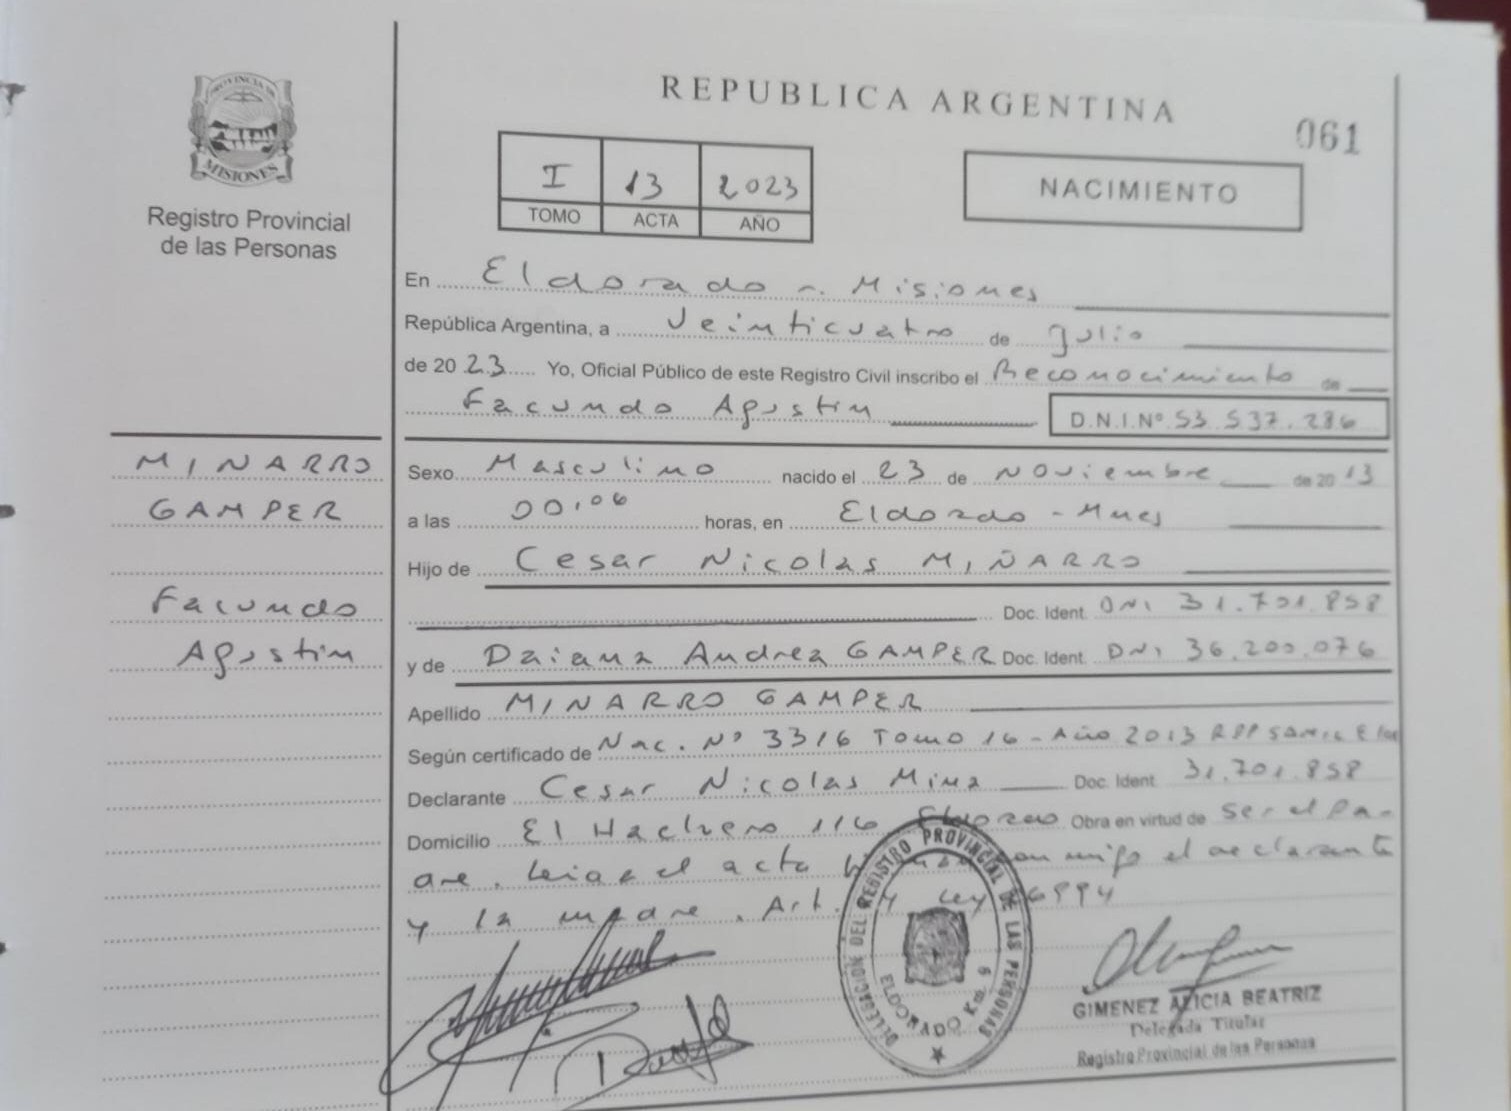 PROVINCIA DE
MISIONES
Registro Provincial
de las Personas
REPUBLICA ARGENTINA
061
I 13 2023
TOMO ACTA AÑO
NACIMIENTO
En Eldorado - Misiones
República Argentina, a Veinticuatro de Julio
de 2023 Yo, Oficial Público de este Registro Civil inscribo el Reconocimiento de
Facundo Agustin D.N.I.Nº 53.537.286
MINARRO
GAMPER
Facundo
Agustin
Sexo Masculino nacido el 23 de Noviembre de 2013
a las 00:06 horas, en Eldorado - Mnes
Hijo de Cesar Nicolas MIÑARRO
Doc. Ident. DNI 31.701.858
y de Daiana Andrea GAMPER Doc. Ident. DNI 36.200.076
Apellido MINARRO GAMPER
Según certificado de Nac. Nº 3316 Tomo 16 - Año 2013 RPP
Declarante Cesar Nicolas Doc. Ident 31.701.858
Domicilio El Hachero 116 Eldorado Obra en virtud de Ser el Pa-
dre. Leida el acta conmigo el declarante
y la madre. Art. Ley
DELEGACION DEL REGISTRO PROVINCIAL DE LAS PERSONAS
ELDORADO Km. 9
GIMENEZ ALICIA BEATRIZ
Delegada Titular
Registro Provincial de las Personas